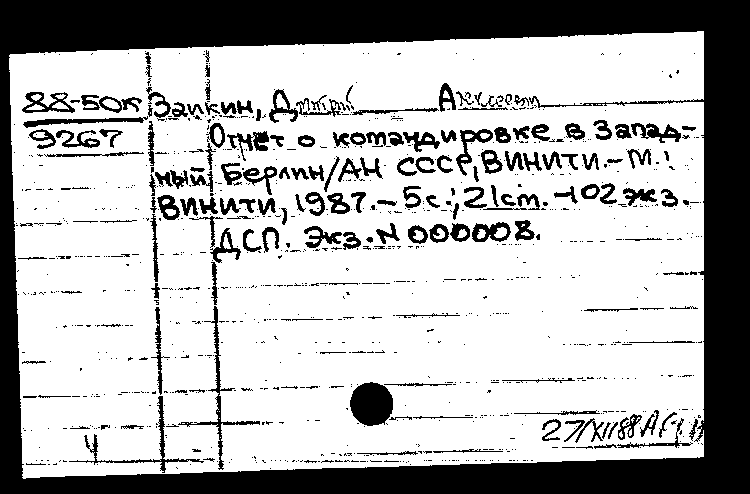 88-50к Заикин, Дмитрий Алексеевич
9267 Отчёт о командировке в Запад-
ный Берлин/АН СССР, ВИНИТИ.-М.:
ВИНИТИ, 1987.-5с.; 21cm.-102экз.
ДСП. Экз.N 000008.
27/XII88
4